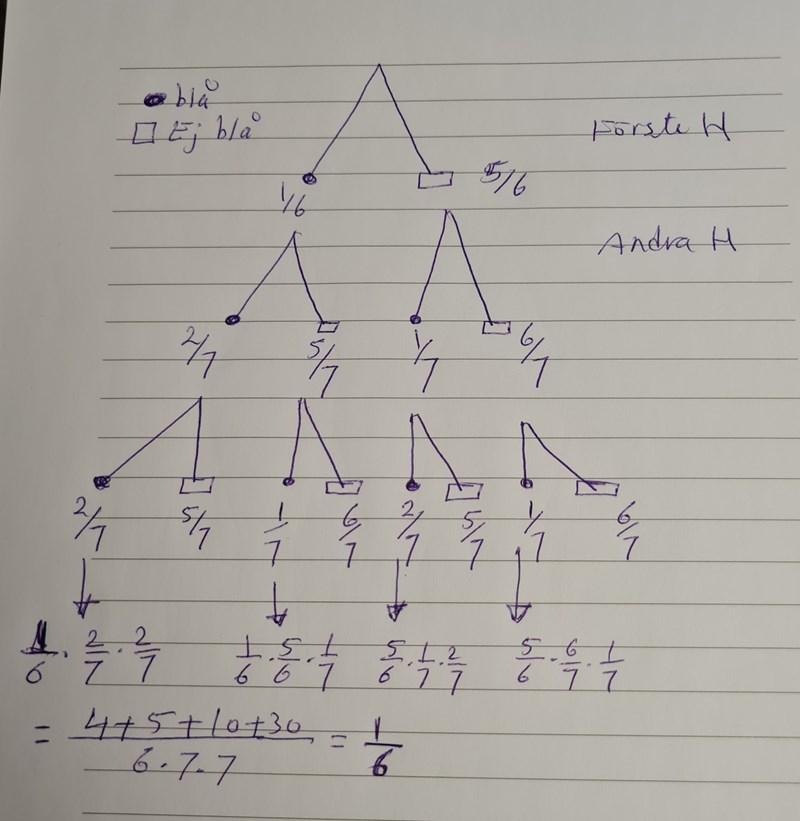 blå
Ej blå
Förste H
1/6 5/6
Andra H
2/7 5/7 1/7 6/7
2/7 5/7 1/7 6/7 2/7 5/7 1/7 6/7
1/6 · 2/7 · 2/7 1/6 · 5/6 · 1/7 5/6 · 1/7 · 2/7 5/6 · 6/7 · 1/7
= 4+5+10+30 / 6·7·7 = 1/6